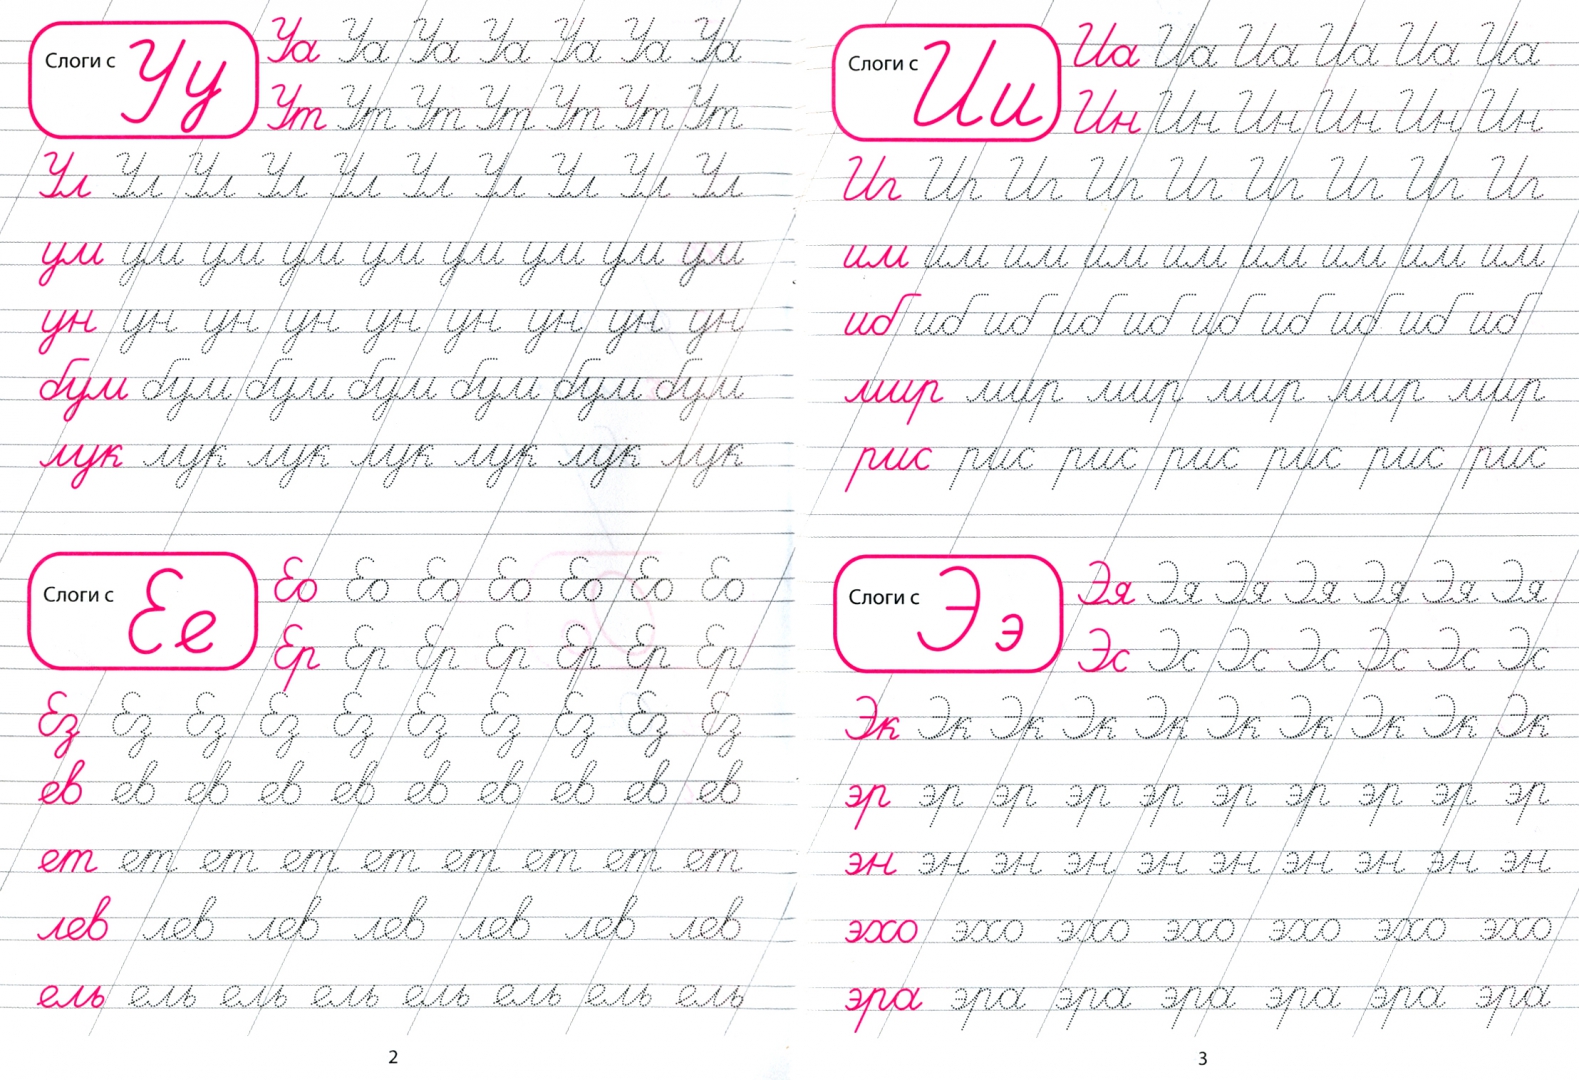 Слоги с Уу
Уа Уа Уа Уа Уа Уа Уа
Ут Ут Ут Ут Ут Ут Ут
Ул Ул Ул Ул Ул Ул Ул Ул Ул Ул
ум ум ум ум ум ум ум ум ум
ун ун ун ун ун ун ун ун ун
бум бум бум бум бум бум бум
лук лук лук лук лук лук лук
Слоги с Ее
Ео Ео Ео Ео Ео Ео Ео
Ер Ер Ер Ер Ер Ер Ер
Ез Ез Ез Ез Ез Ез Ез Ез Ез Ез
ев ев ев ев ев ев ев ев ев ев
ет ет ет ет ет ет ет ет ет
лев лев лев лев лев лев лев
ель ель ель ель ель ель ель ель
2
Слоги с Ии
Иа Иа Иа Иа Иа Иа
Ин Ин Ин Ин Ин Ин
Иг Иг Иг Иг Иг Иг Иг Иг Иг
им им им им им им им им им
иб иб иб иб иб иб иб иб иб иб
мир мир мир мир мир мир
рис рис рис рис рис рис рис
Слоги с Ээ
Эя Эя Эя Эя Эя Эя Эя
Эс Эс Эс Эс Эс Эс Эс
Эк Эк Эк Эк Эк Эк Эк Эк Эк Эк
эр эр эр эр эр эр эр эр эр эр
эн эн эн эн эн эн эн эн эн эн
эхо эхо эхо эхо эхо эхо эхо
эра эра эра эра эра эра эра
3